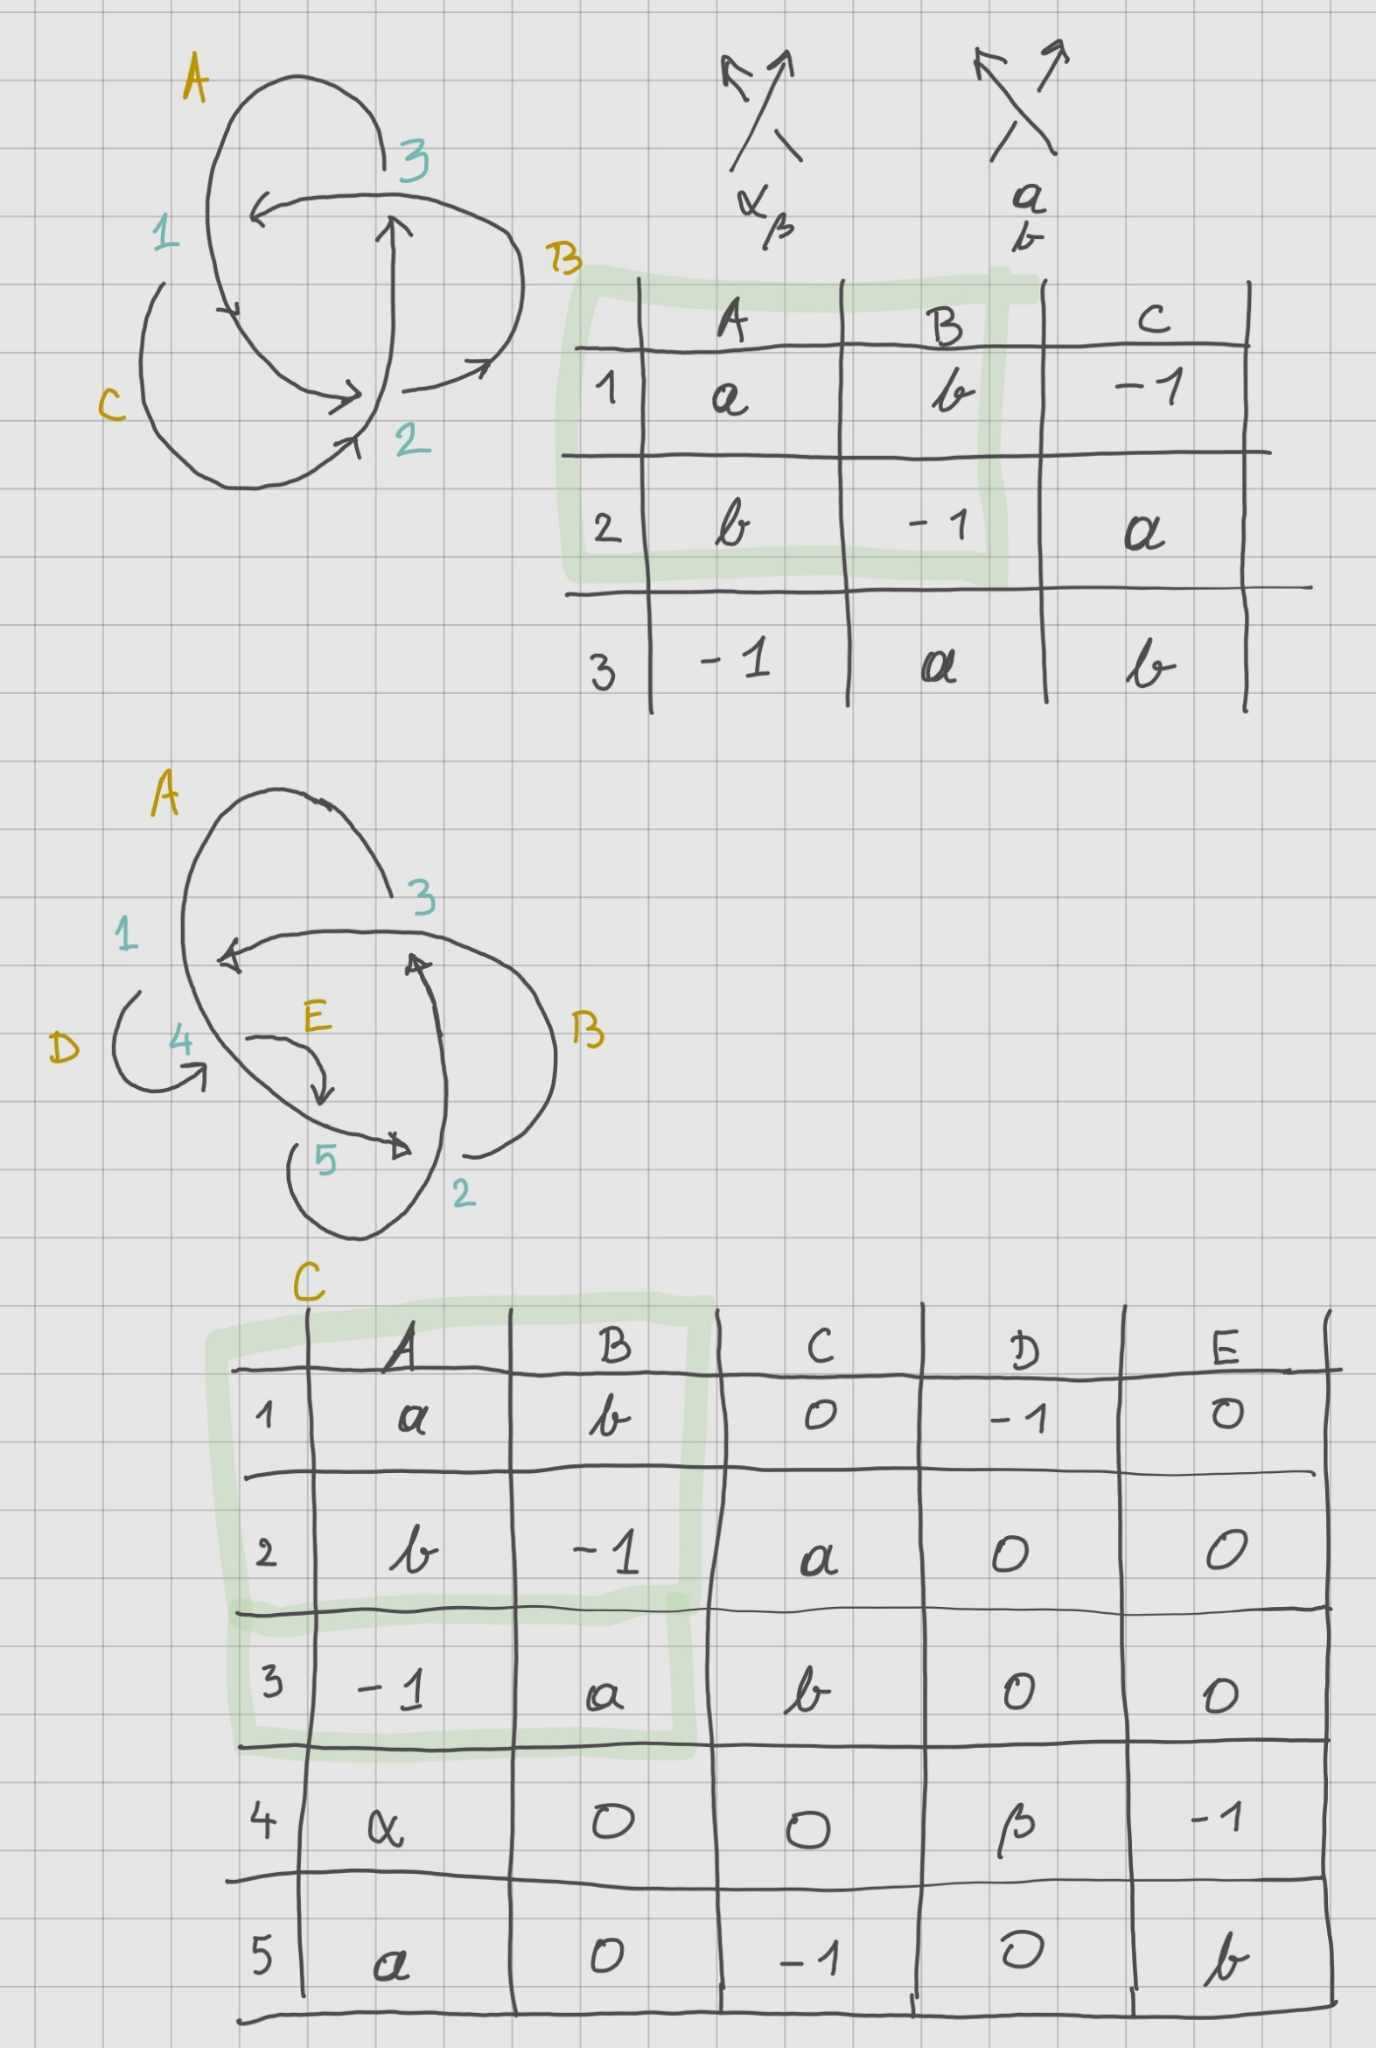 A
3
1
B
C
2
α a
β b
A B C
1 a b -1
2 b -1 a
3 -1 a b
A
3
1
E
4
D
B
5
2
C
A B C D E
1 a b 0 -1 0
2 b -1 a 0 0
3 -1 a b 0 0
4 α 0 0 β -1
5 a 0 -1 0 b